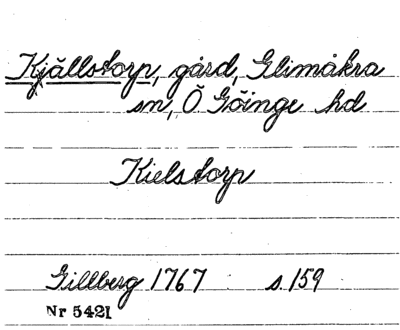 Kjällstorp, gård, Glimåkra
sn, Ö Göinge hd
Kielstorp
Gillberg 1767 s. 159
Nr 5421